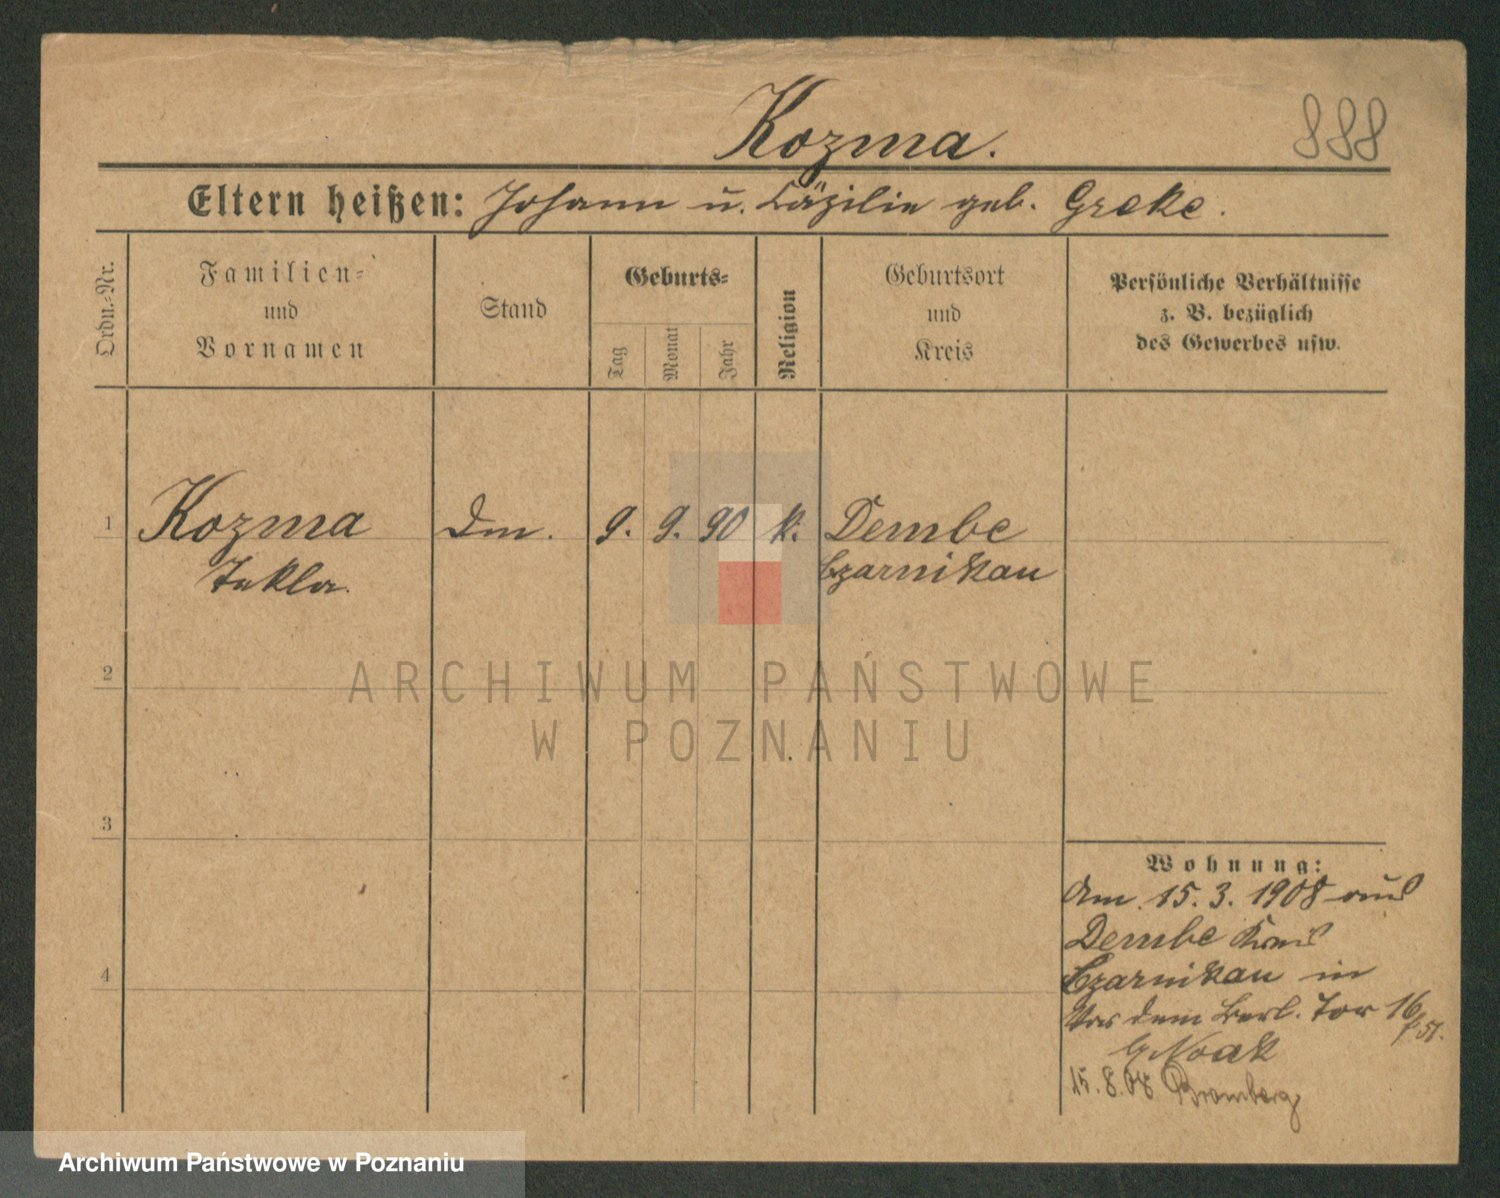 Kozma.
888
Eltern heißen: Johann u. Cäzilie geb. Greke.
Ordn.-Nr.
Familien-
und
Vornamen
Stand
Geburts-
Tag
Monat
Jahr
Religion
Geburtsort
und
Kreis
Persönliche Verhältnisse
z. B. bezüglich
des Gewerbes usw.
1 Kozma Dm. 9. 9. 90 k. Dembe
Tekla. Czarnikau
2
3
4
Wohnung:
Am 15. 3. 1908 aus
Dembe Kreis
Czarnikau in
Vor dem Berl. Tor 16
Noak
15. 8. 08 Bromberg
ARCHIWUM PAŃSTWOWE
W POZNANIU
Archiwum Państwowe w Poznaniu